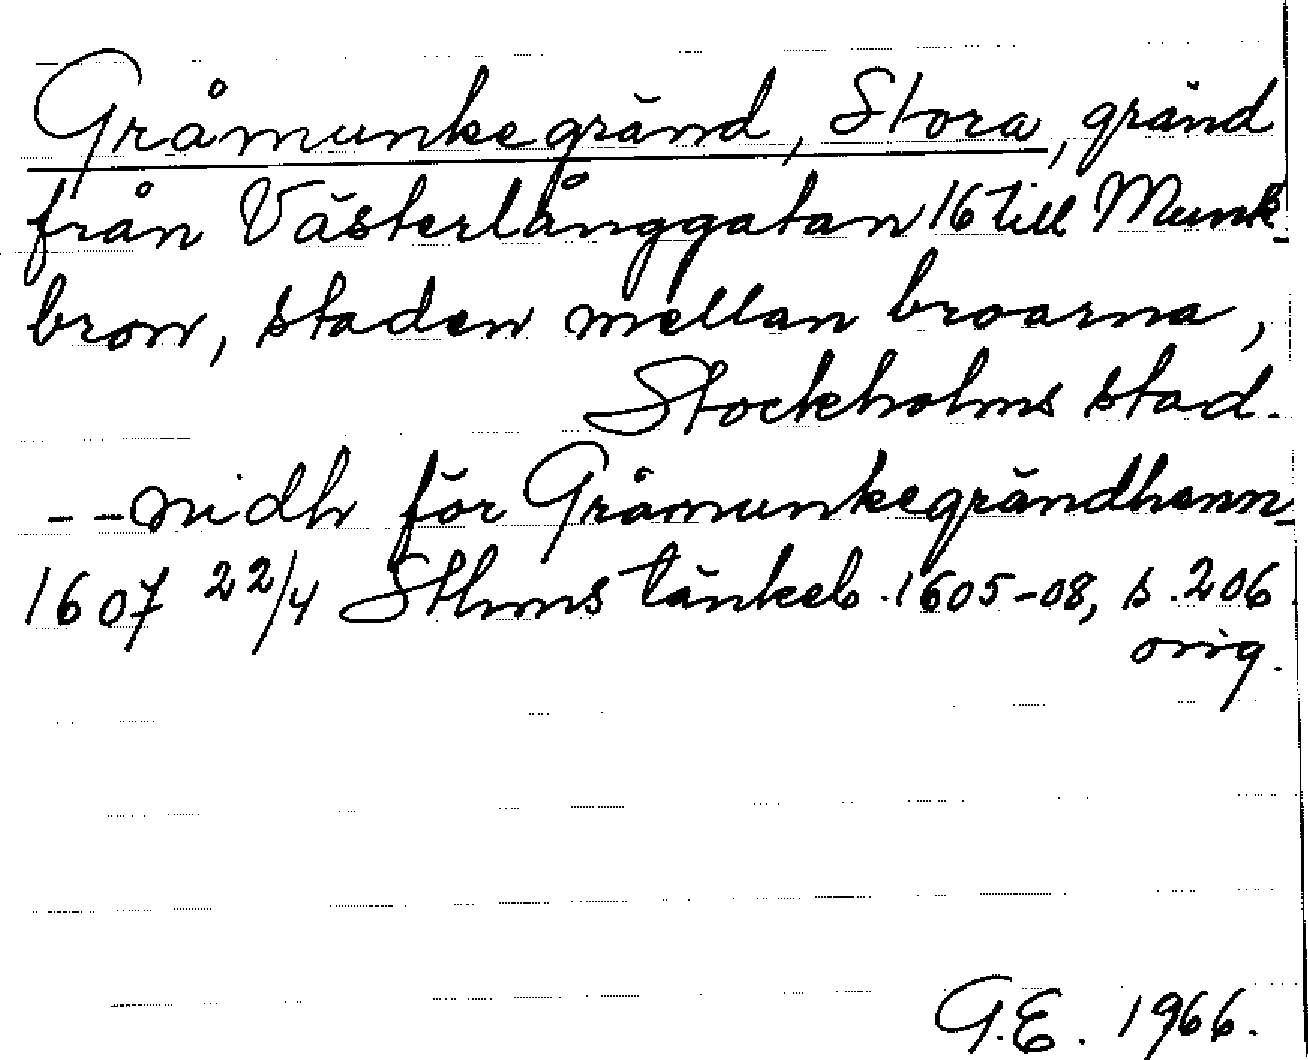 Gråmunkegränd, Stora, gränd
från Västerlånggatan 16 till Munk-
bron, staden mellan broarna,
Stockholms stad.
- - nidh för Gråmunkegrändhenn -
1607 22/4 Sthms tänkeb. 1605-08, s. 206
orig.
G.E. 1966.